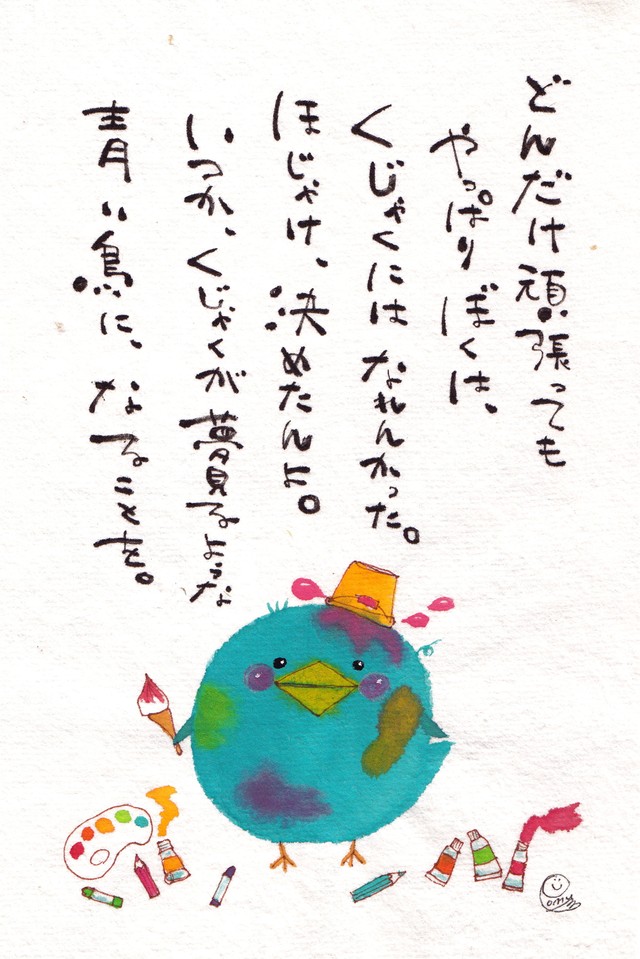 どんだけ頑張っても
やっぱりぼくは、
くじゃくには なれんかった。
ほじゃけ、決めたんよ。
いつか、くじゃくが夢見るような
青い鳥に、なることを。